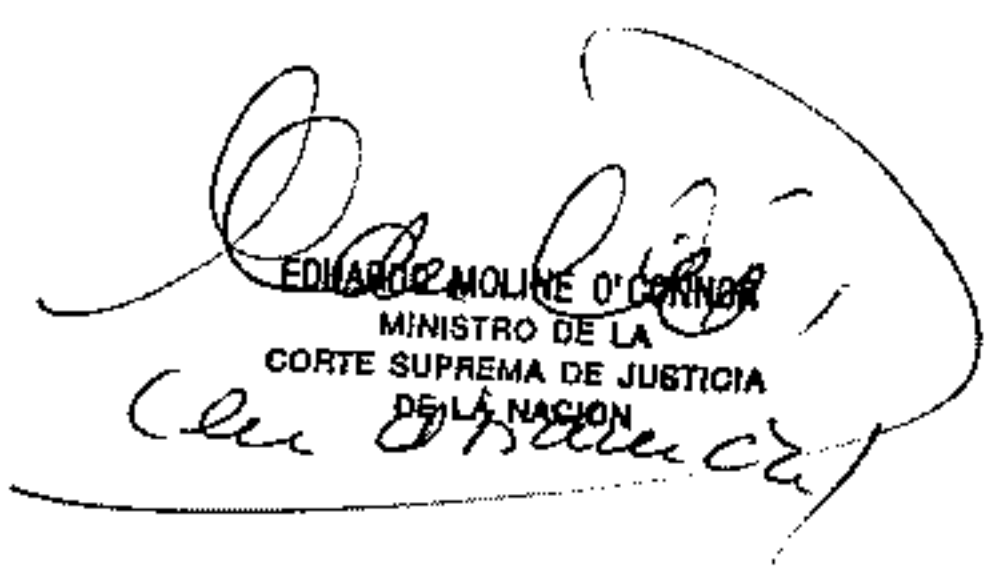 EDUARDO MOLINE O'CONNOR
MINISTRO DE LA
CORTE SUPREMA DE JUSTICIA
DE LA NACION
(en disidencia)